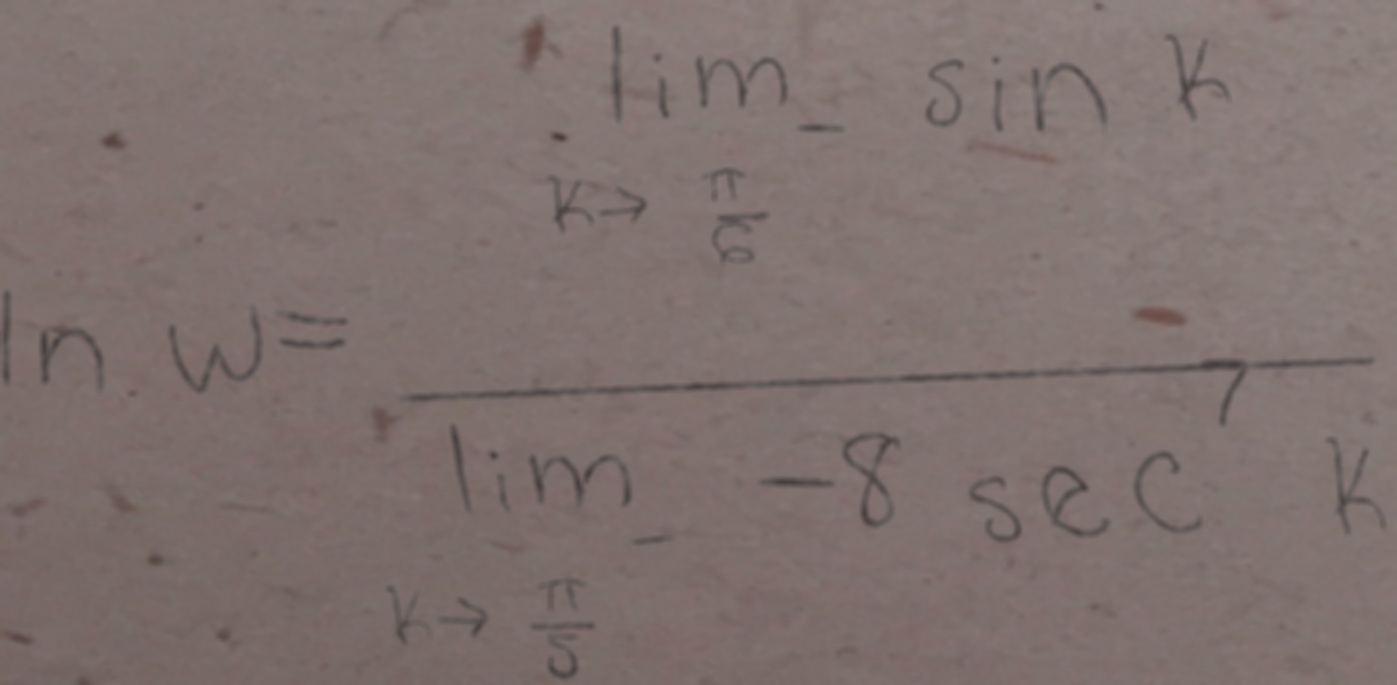 ln w = \frac{\lim_{k \to \frac{\pi}{6}^-} \sin k}{\lim_{k \to \frac{\pi}{5}^-} -8 \sec^7 k}